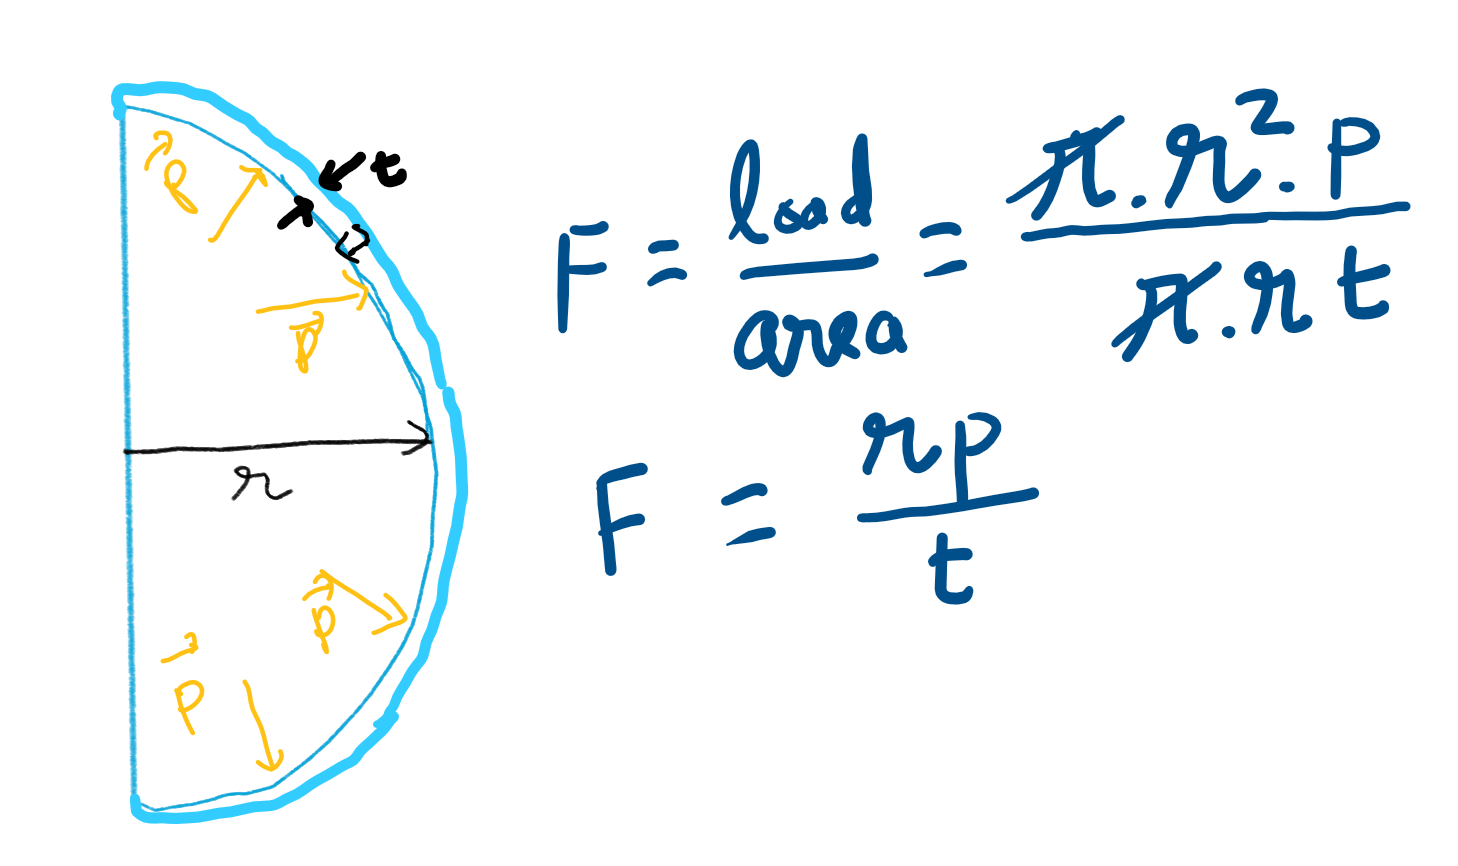 t
p⃗
p⃗
r
p⃗
p⃗
F = load/area = π.r².p/π.r t
F = rp/t